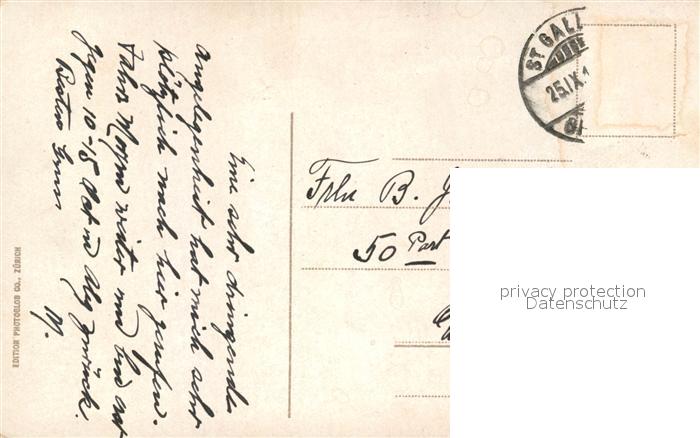 Eine sehr dringende
Angelegenheit hat mich sehr
plötzlich nach hier gerufen.
Fahre Morgen weiter und bin erst
gegen 10-15 Oct in Alg zurück.
Besten Gruss
M.
EDITION PHOTOGLOB CO., ZÜRICH
ST GALL
25.IX.1
Frln B.
50 Part
privacy protection
Datenschutz